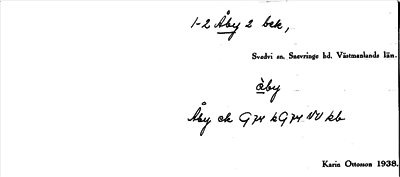 1-2 Åby 2 bek,
Svedvi sn. Snevringe hd. Västmanlands län.
åby
Åby ck G74 k G74 NV kb
Karin Ottosson 1938.